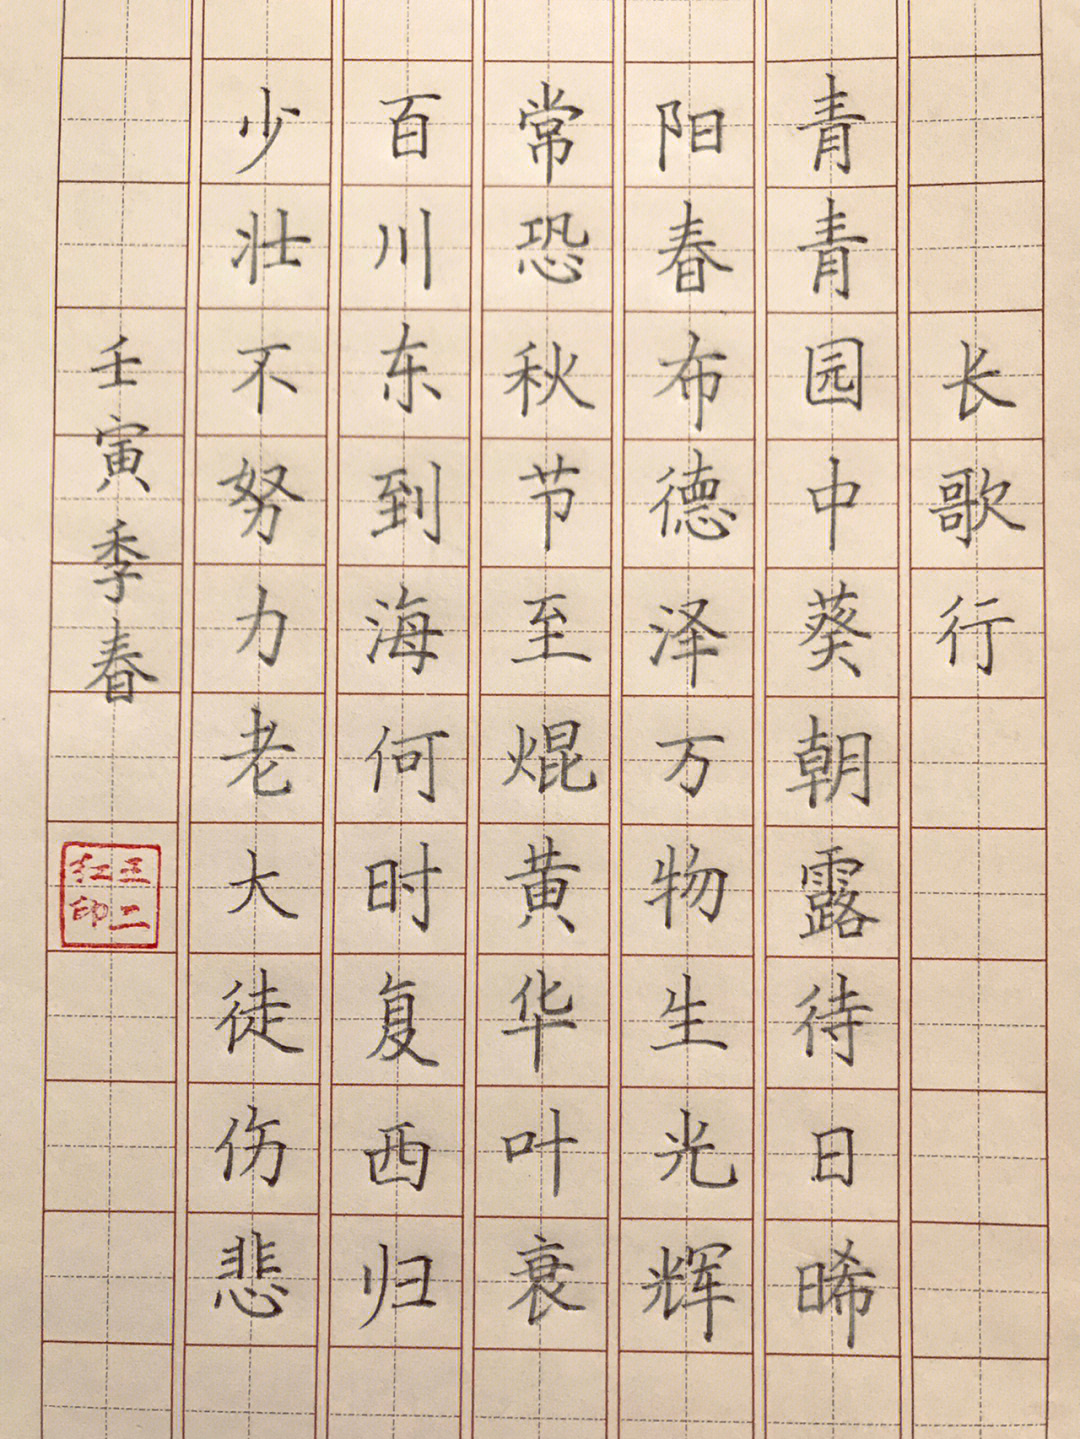 长歌行
青青园中葵朝露待日晞
阳春布德泽万物生光辉
常恐秋节至焜黄华叶衰
百川东到海何时复西归
少壮不努力老大徒伤悲
壬寅季春
王二
红印